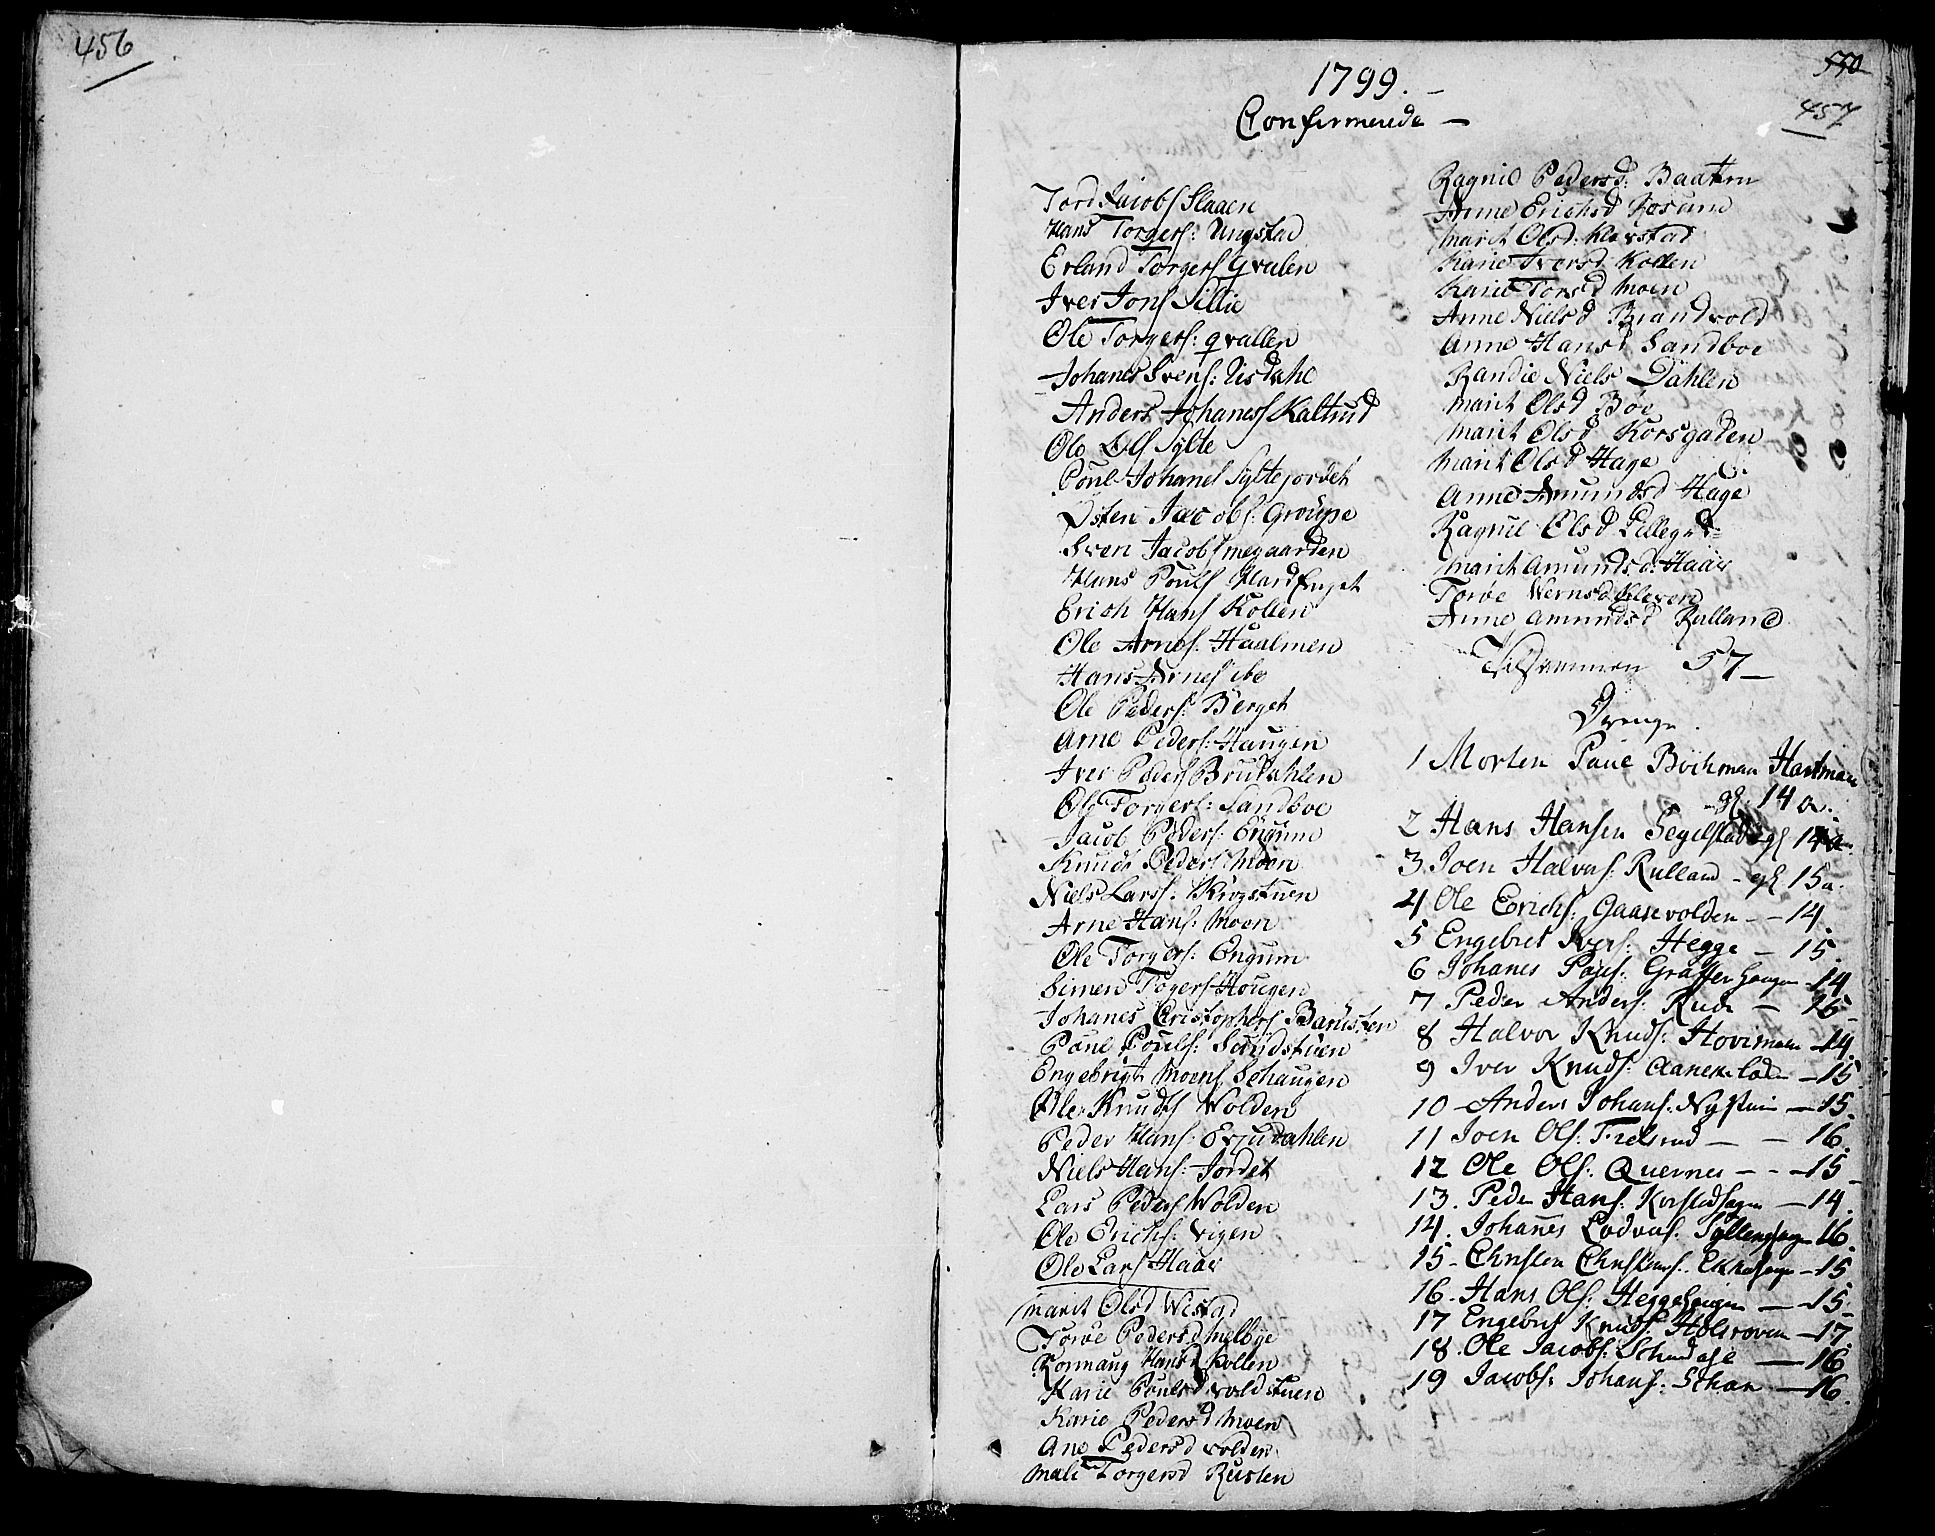 456
550
457
1799. -
Confirmerede -
Tord Jacobs Slaaen
Hans Torgers: Ungstad
Erland Torgers Qvalen
Iver Jons Lillie
Ole Torgers: qvallen
Johanes Svens: Usdahl
Anders Johaness Kaltrud
Ole Ols Sylte
Poul Johanes Syltejordet
Østen Jacobs: Groupe
Sven Jacobs megaarden
Hans Pouls Hardenget
Erich Hans Kollen
Ole Arnes: Haalmen
Hans Arnes ibo
Ole Peders: Berget
Arne Peders: Haugen
Iver Peders Brudahlen
Ole Torgers: Sandboe
Jacob Peders: Engum
Knud Peders Moen
Niels Lars: Krogstuen
Arne Hans: Moen
Ole Torgers: Engum
Simen Togers Hougen
Johanes Cristophers Barüsten
Poul Pouls: Suydstuen
Engebrigt Moens Behaugen
Ole Knuds Wolden
Peder Hans: Evjudahlen
Niels Hans: Jordet
Lars Peders Wolden
Ole Erichs: Vigen
Ole Lars Haar
Marit Olsd Westad
Toröe Pedersd Melbye
Ronnaug Hansd Kollen
Karie Poulsd voldstuen
Karie Pedersd Moen
Ane Pedersd volden
Mali Torgersd Rusten
Ragnil Pedersd: Baatten
Anne Erichsd Rosum
Marit Olsd: Klevstad
Karie Iversd Kollen
Karie Torsd Moen
Anne Nielsd Brandvold
Anne Hansd Sandboe
Randie Niels Dahlen
Marit Olsd Böe
Marit Olsd Korsgaden
Marit Olsd Hage
Anne Amundsd Hage
Ragnil Olsd Lillegrd=
Marit Amundsd: Haar
Toröe Wernsd Kleven
Anne Amundsd Rulland
Tilsammen 57 -
Drenge
1 Morten Paul Böckman Hartman
gl. 14 a.
2 Hans Hansen Segelstad gl 14 a
3 Joen Halvors: Rulland - gl 15 a.
4 Ole Erichs: Gaasevolden - - 14
5 Engebret Ivers: Hegge - 15
6 Johanes Pouls: Graffer haugen - 14
7 Peder Anders: Rude - 16
8 Halvor Knuds: Hovimoen - 14
9 Iver Knuds: Aanekeladen - 15
10 Anders Johans: Nystuin - 15.
11 Joen Ols: Frelsrud - - 16
12 Ole Ols: Quernes - - - 15
13. Peder Hans: Korstadhagen - 14.
14. Johanes Lodvars: 16.
15 - Christen Christens: - 15
16. Hans Ols: Heggehaugen - 15.
17 Engebret Knuds: Holsroven - 17
18. Ole Jacobs: - 16
19 Jacobs: Johans: Sthan - 16.